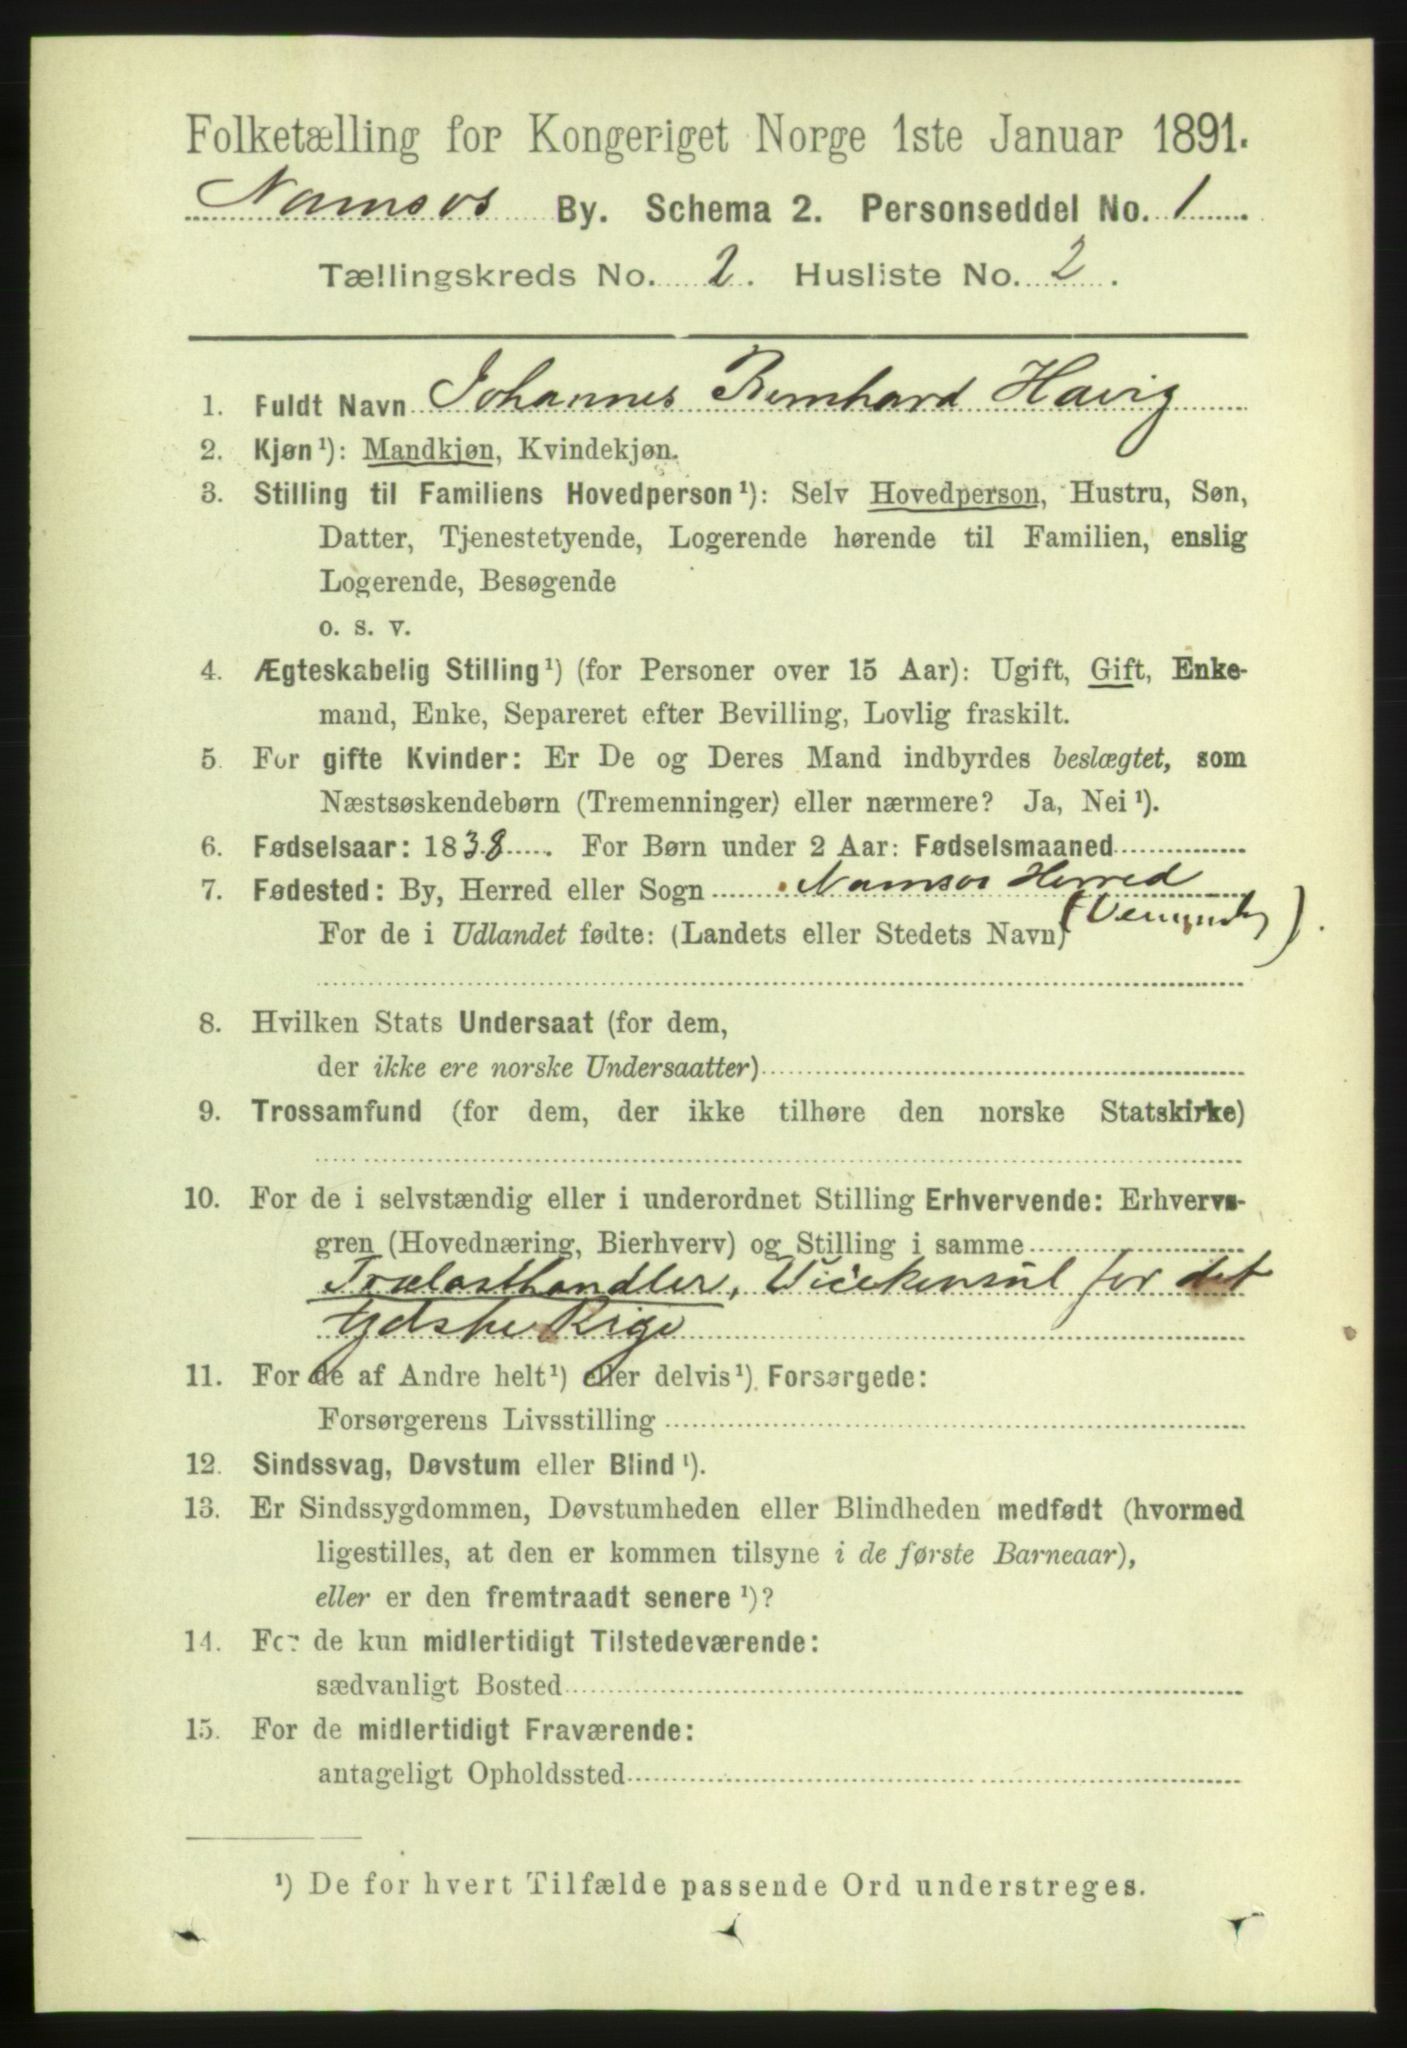 Folketælling for Kongeriget Norge 1ste Januar 1891.
Namsos By. Schema 2. Personseddel No. 1
Tællingskreds No. 2. Husliste No. 2.
1. Fuldt Navn Johannes Bernhard Havig
2. Kjøn¹): Mandkjøn, Kvindekjøn.
3. Stilling til Familiens Hovedperson¹): Selv Hovedperson, Hustru, Søn,
Datter, Tjenestetyende, Logerende hørende til Familien, enslig
Logerende, Besøgende
o. s. v.
4. Ægteskabelig Stilling¹) (for Personer over 15 Aar): Ugift, Gift, Enke-
mand, Enke, Separeret efter Bevilling, Lovlig fraskilt.
5. For gifte Kvinder: Er De og Deres Mand indbyrdes beslægtet, som
Næstsøskendebørn (Tremenninger) eller nærmere? Ja, Nei¹).
6. Fødselsaar: 1838. For Børn under 2 Aar: Fødselsmaaned
7. Fødested: By, Herred eller Sogn Namsos Herred
For de i Udlandet fødte: (Landets eller Stedets Navn)
8. Hvilken Stats Undersaat (for dem,
der ikke ere norske Undersaatter)
9. Trossamfund (for dem, der ikke tilhøre den norske Statskirke)
10. For de i selvstændig eller i underordnet Stilling Erhvervende: Erhvervs-
gren (Hovednæring, Bierhverv) og Stilling i samme
Trælasthandler, Vicekonsul for det
tydske Rige
11. For de af Andre helt¹) eller delvis¹) Forsørgede:
Forsørgerens Livsstilling
12. Sindssvag, Døvstum eller Blind¹).
13. Er Sindssygdommen, Døvstumheden eller Blindheden medfødt (hvormed
ligestilles, at den er kommen tilsyne i de første Barneaar),
eller er den fremtraadt senere¹)?
14. For de kun midlertidigt Tilstedeværende:
sædvanligt Bosted
15. For de midlertidigt Fraværende:
antageligt Opholdssted
¹) De for hvert Tilfælde passende Ord understreges.